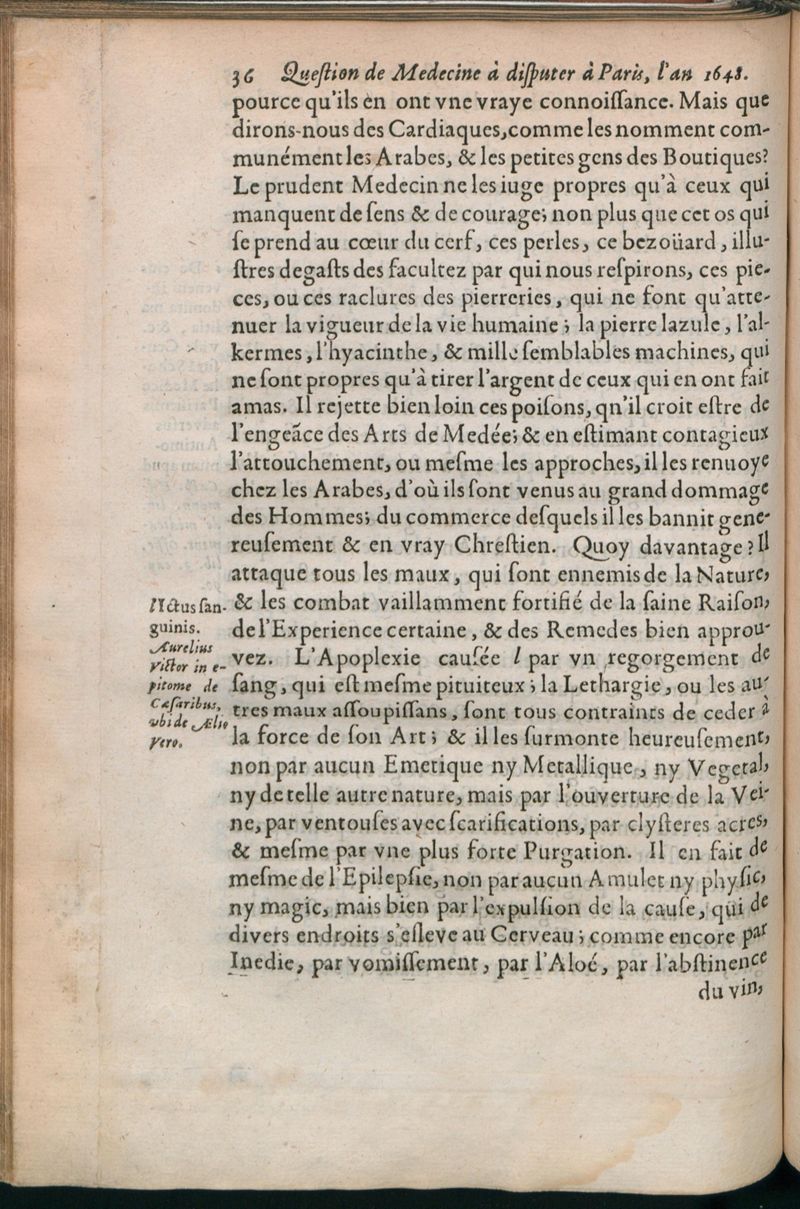 36 Question de Medecine à disputer à Paris, l'an 1648.
pource qu'ils en ont vne vraye connoiſſance. Mais que
dirons-nous des Cardiaques, comme les nomment com-
munément les Arabes, & les petites gens des Boutiques?
Le prudent Medecin ne les iuge propres qu'à ceux qui
manquent de ſens & de courage; non plus que cet os qui
ſe prend au cœur du cerf, ces perles, ce bezoüard, illu-
ſtres degaſts des facultez par qui nous reſpirons, ces pie-
ces, ou ces raclures des pierreries, qui ne font qu'atte-
nuer la vigueur de la vie humaine; la pierre lazule, l'al-
kermes, l'hyacinthe, & mille ſemblables machines, qui
ne ſont propres qu'à tirer l'argent de ceux qui en ont fait
amas. Il rejette bien loin ces poiſons, qn'il croit eſtre de
l'engeãce des Arts de Medée; & en eſtimant contagieux
l'attouchement, ou meſme les approches, il les renuoye
chez les Arabes, d'où ils ſont venus au grand dommage
des Hommes; du commerce deſquels il les bannit gene-
reuſement & en vray Chreſtien. Quoy davantage? Il
attaque tous les maux, qui ſont ennemis de la Nature,
& les combat vaillamment fortifié de la ſaine Raiſon,
de l'Experience certaine, & des Remedes bien approu-
vez. L'Apoplexie cauſée l par vn regorgement de
ſang, qui eſt meſme pituiteux; la Lethargie, ou les au-
tres maux aſſoupiſſans, ſont tous contraints de ceder à
la force de ſon Art; & il les ſurmonte heureuſement,
non par aucun Emetique ny Metallique, ny Vegetal,
ny de telle autre nature, mais par l'ouverture de la Vei-
ne, par ventouſes avec ſcarifications, par clyſteres acres,
& meſme par vne plus forte Purgation. Il en fait de
meſme de l'Epilepſie, non par aucun Amulet ny phyſic,
ny magic, mais bien par l'expulſion de la cauſe, qui de
divers endroits s'eſleve au Cerveau; comme encore par
Inedie, par vomiſſement, par l'Aloé, par l'abſtinence
du vin,
l Ictus ſan-
guinis.
Aurelius
Victor in e-
pitome de
Cæſaribus,
vbi de Ælio
Vero.